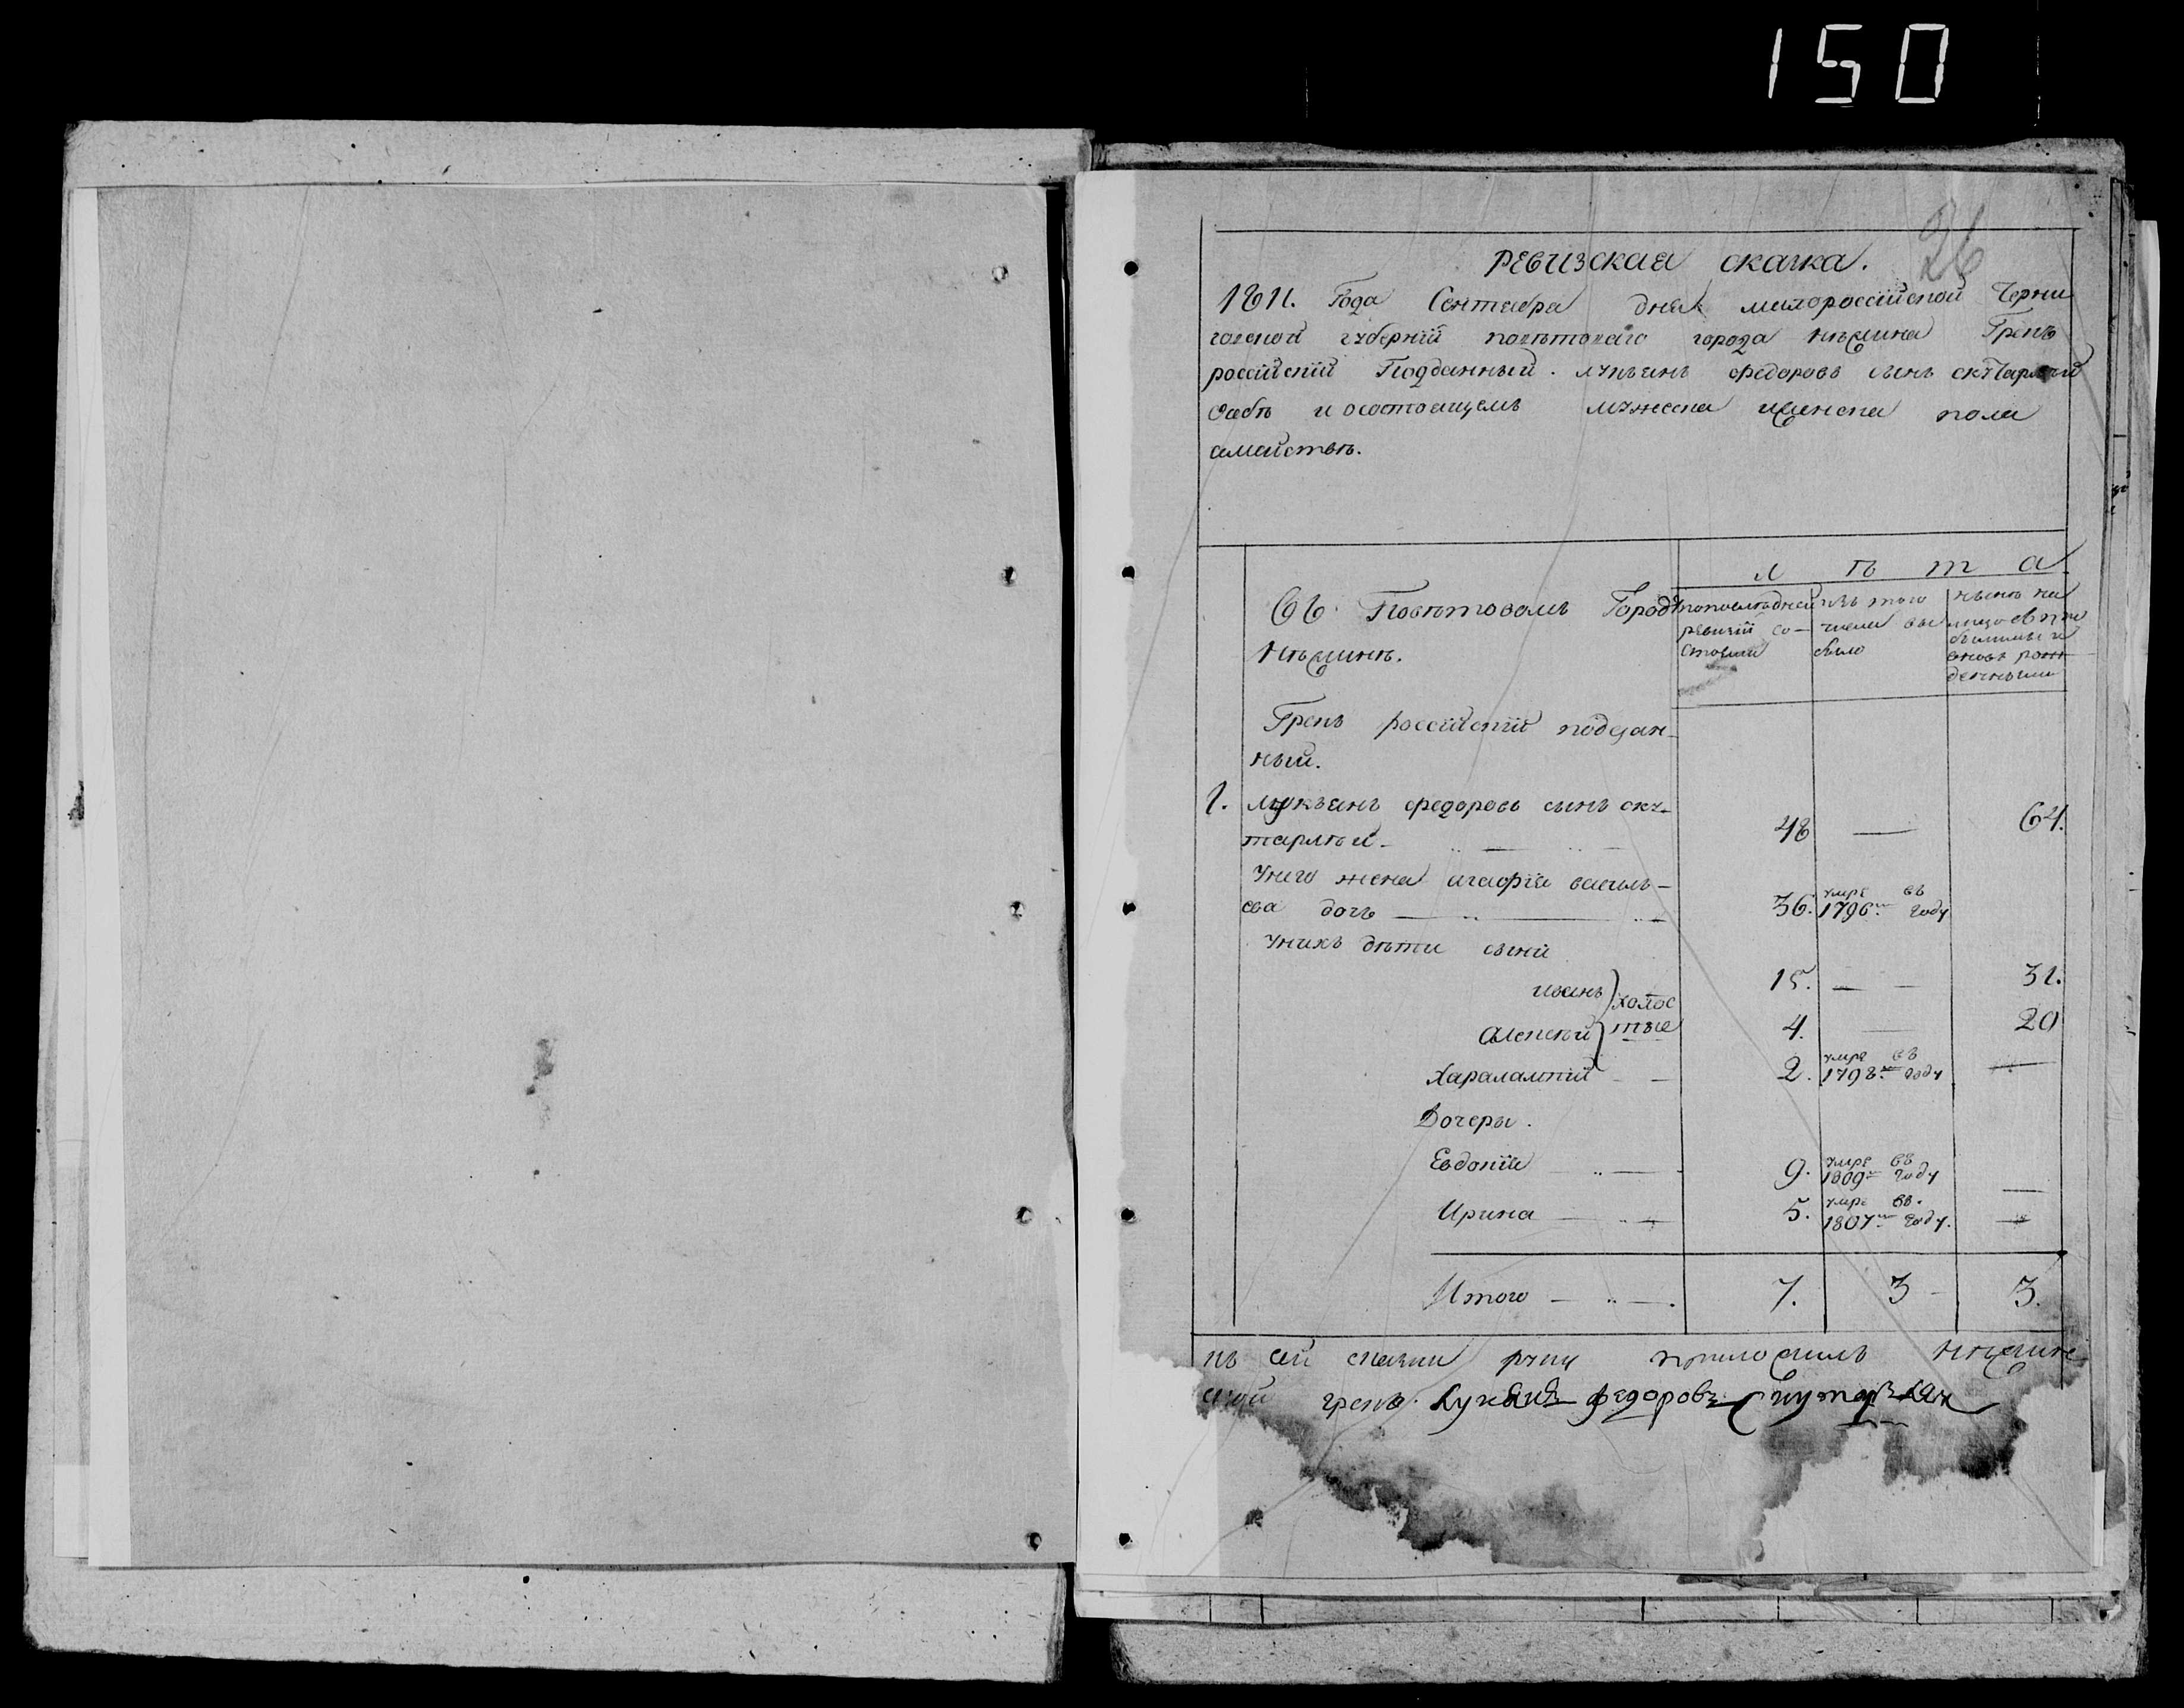 150
26
Ревизская скаска.
1811. Года Сентября дня малороссійской Черни
говской губерніи повѣтоваго города нѣжина Грекъ
россійскій Подданный. лукьянъ федоровъ сынъ скутарлѣй
оСебѣ и осостоящемъ мужеска иженска пола
семействѣ.
Л Ѣ т а
Въ Повѣтовомъ Городѣ
Нѣжинѣ.
попослѣдней
ревизій со-
стояли
изъ того
числа вы
было
нынѣ на
лицо съ при
былыми и
вновь рож
денными
Грекъ россійскій поддан-
ный.
1. лукьянъ федоровъ сынъ ску-
тарлѣй - 48 — 64.
Унего жена агафія василь-
ева дочь — 36. умре въ 1796м году
Унихъ дѣти сыни
иванъ } холос 15. — 31.
Алексѣй } тые 4. — 20
Харалампій — 2. умре въ 1798м году —
Дочеры.
Евдокія — 9. умре въ 1809м году —
Ирина — 5. умре въ 1807м году. —
Итого — 7. 3 - 3.
къ сей скаски руку приложилъ нѣжин
скій грекъ. Лукьянъ федоровъ